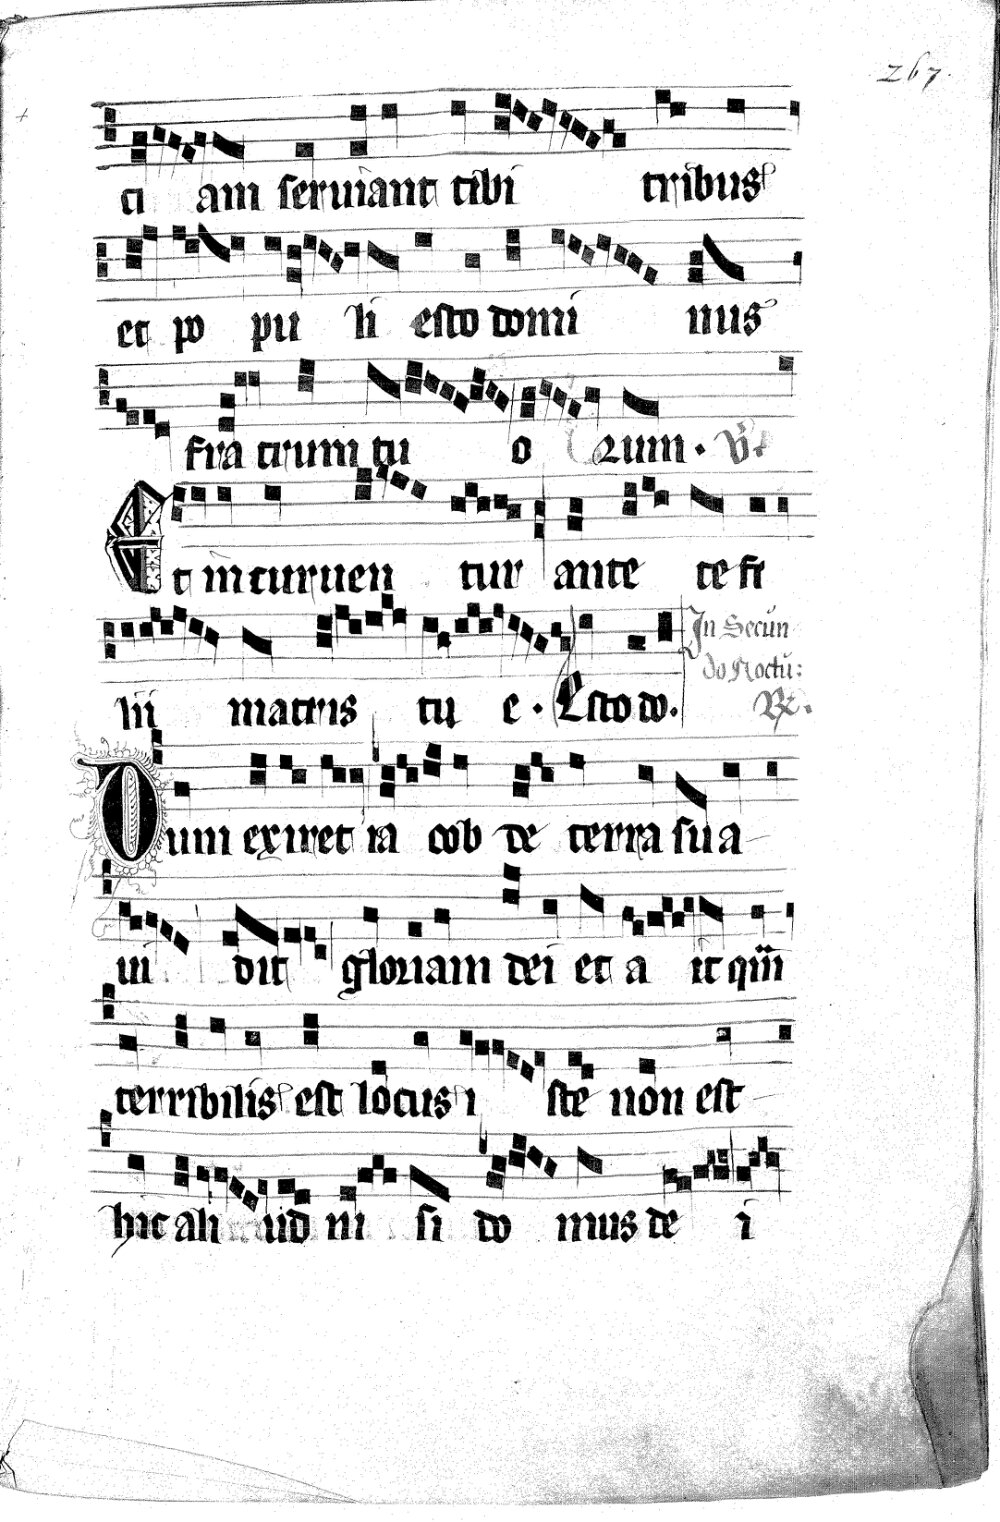 267.
ti am seruiant tibi tribus
et po pu li esto domi nus
fra trum tu o rum. V.
Et incuruen tur ante te fi
lii matris tu e. Esto do.
In Secun
do Noctu:
R.
Dum exiret ia cob de terra sua
ui dit gloriam dei et a it qm̄
terribilis est locus i ste non est
hic ali ud ni si do mus de i